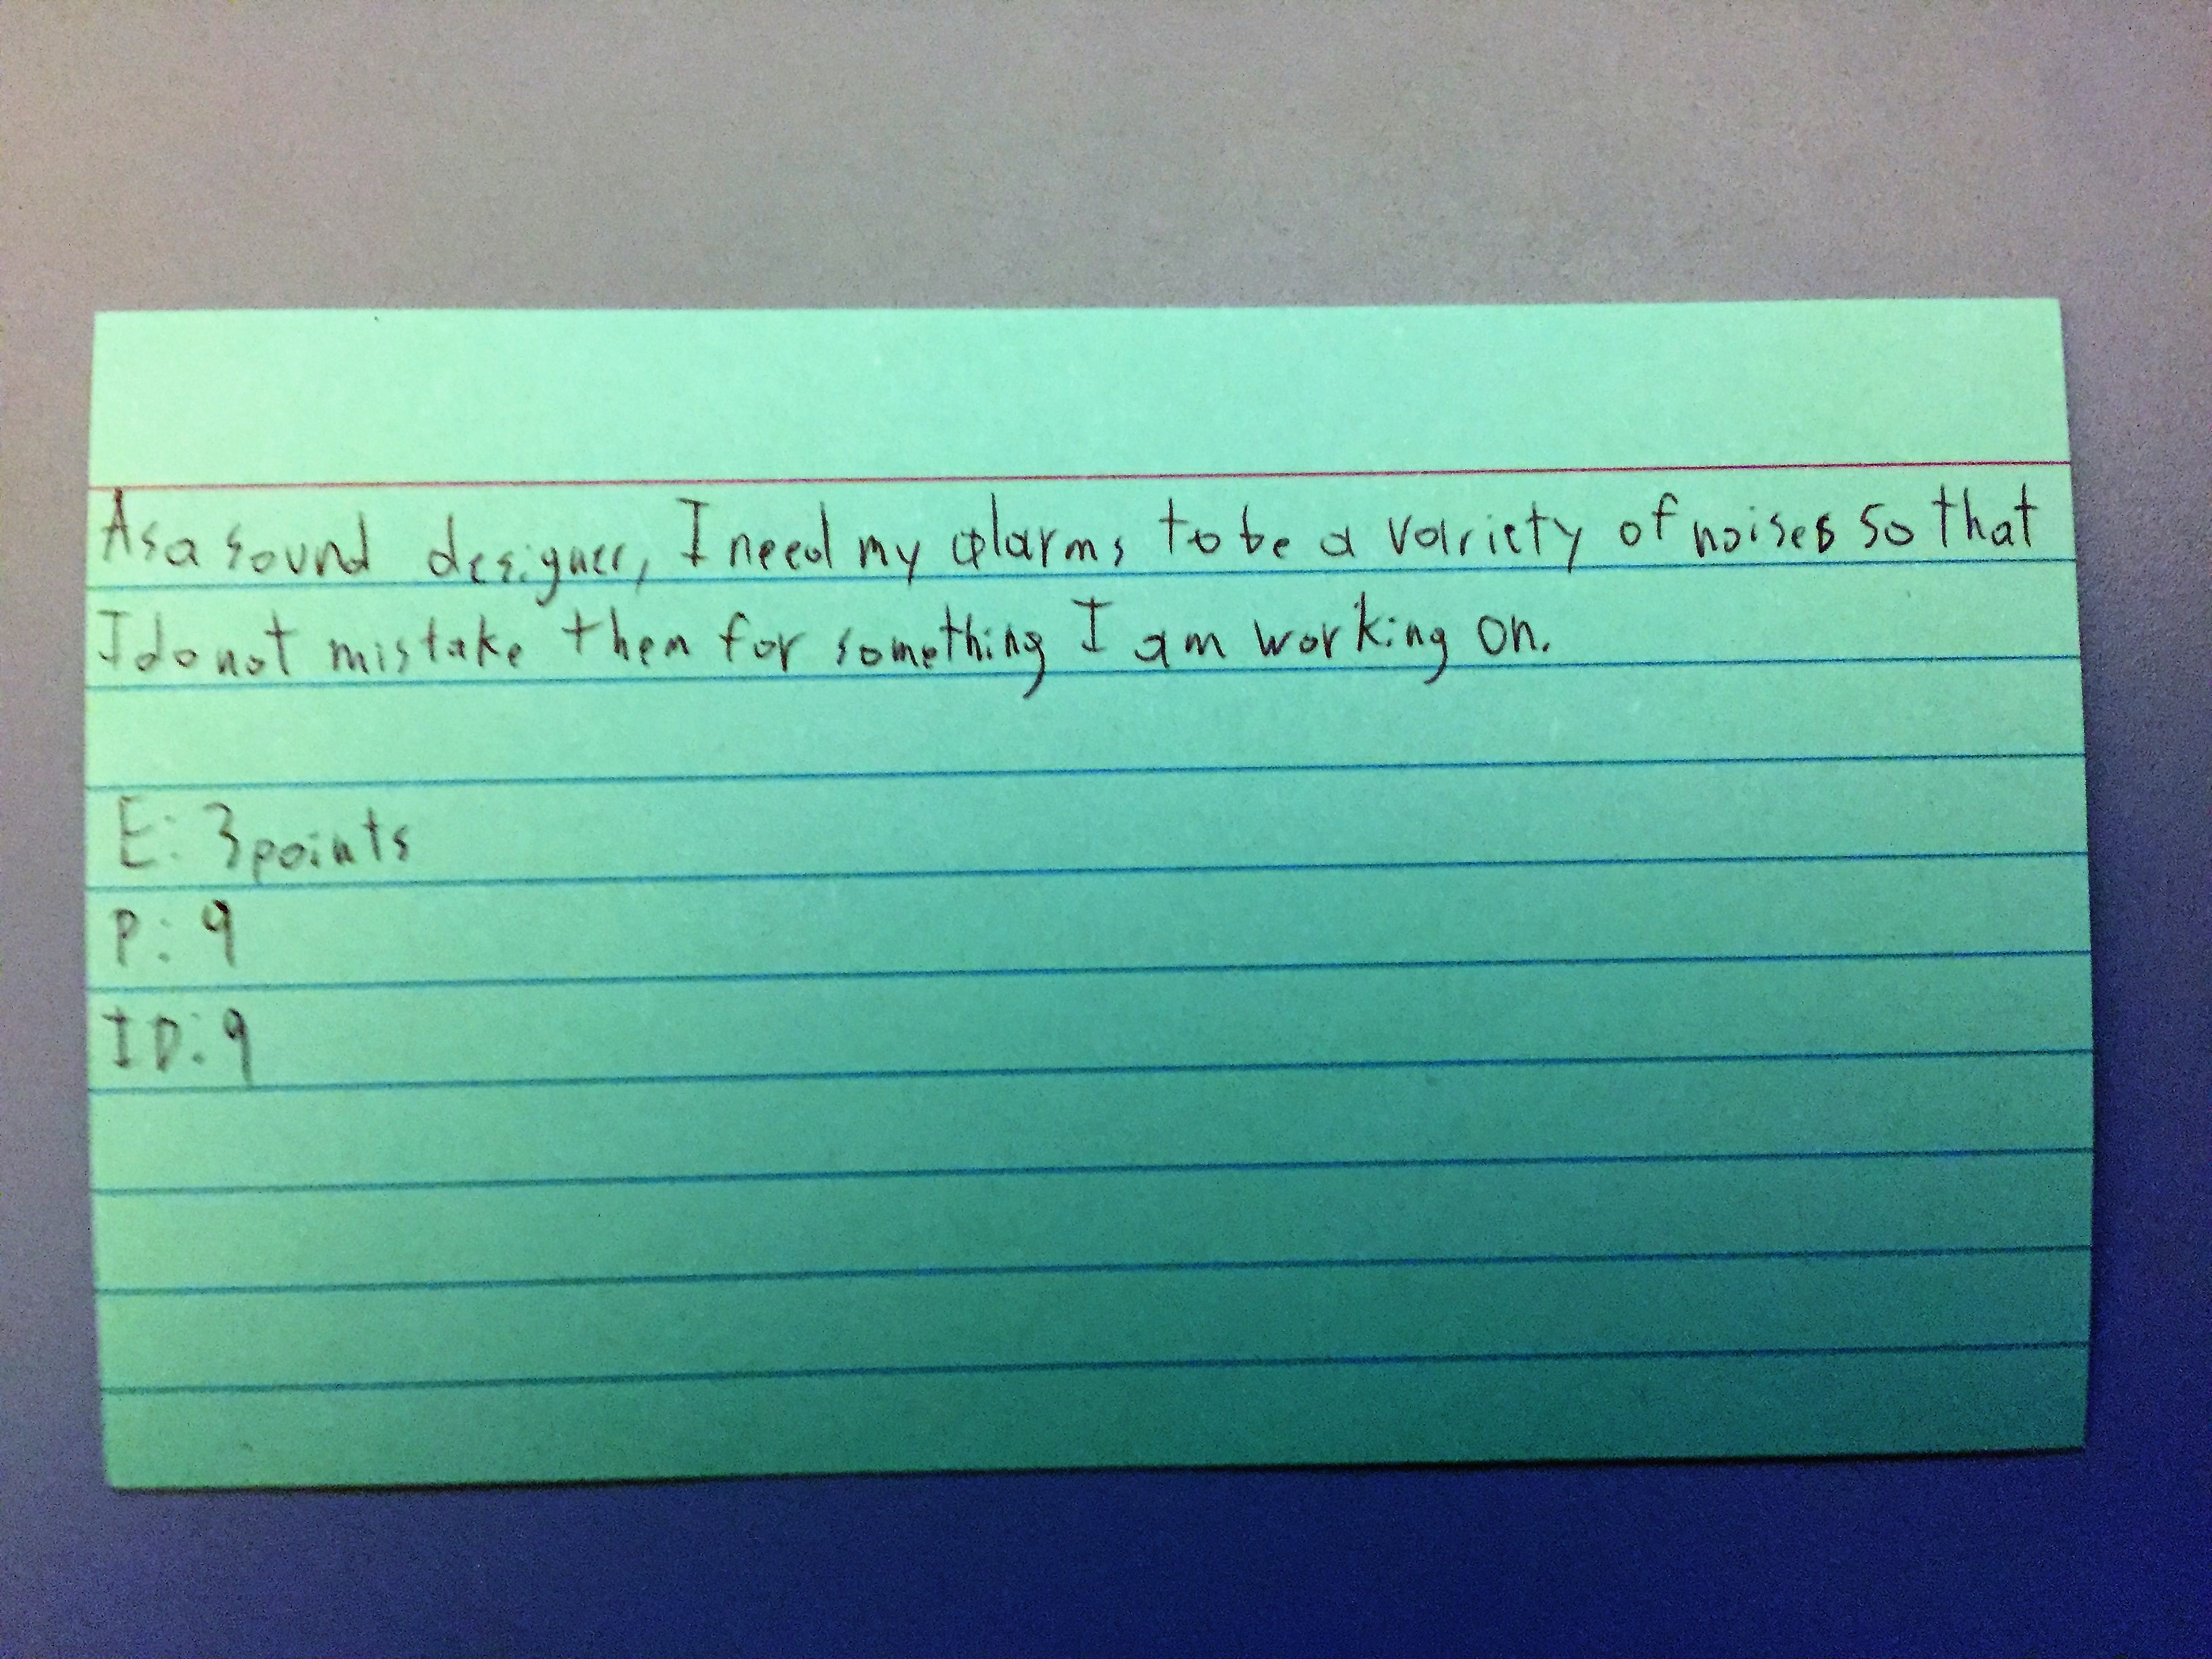 As a sound designer, I need my alarms to be a variety of noises so that
I do not mistake them for something I am working on.
E: 3 points
P: 9
ID: 9